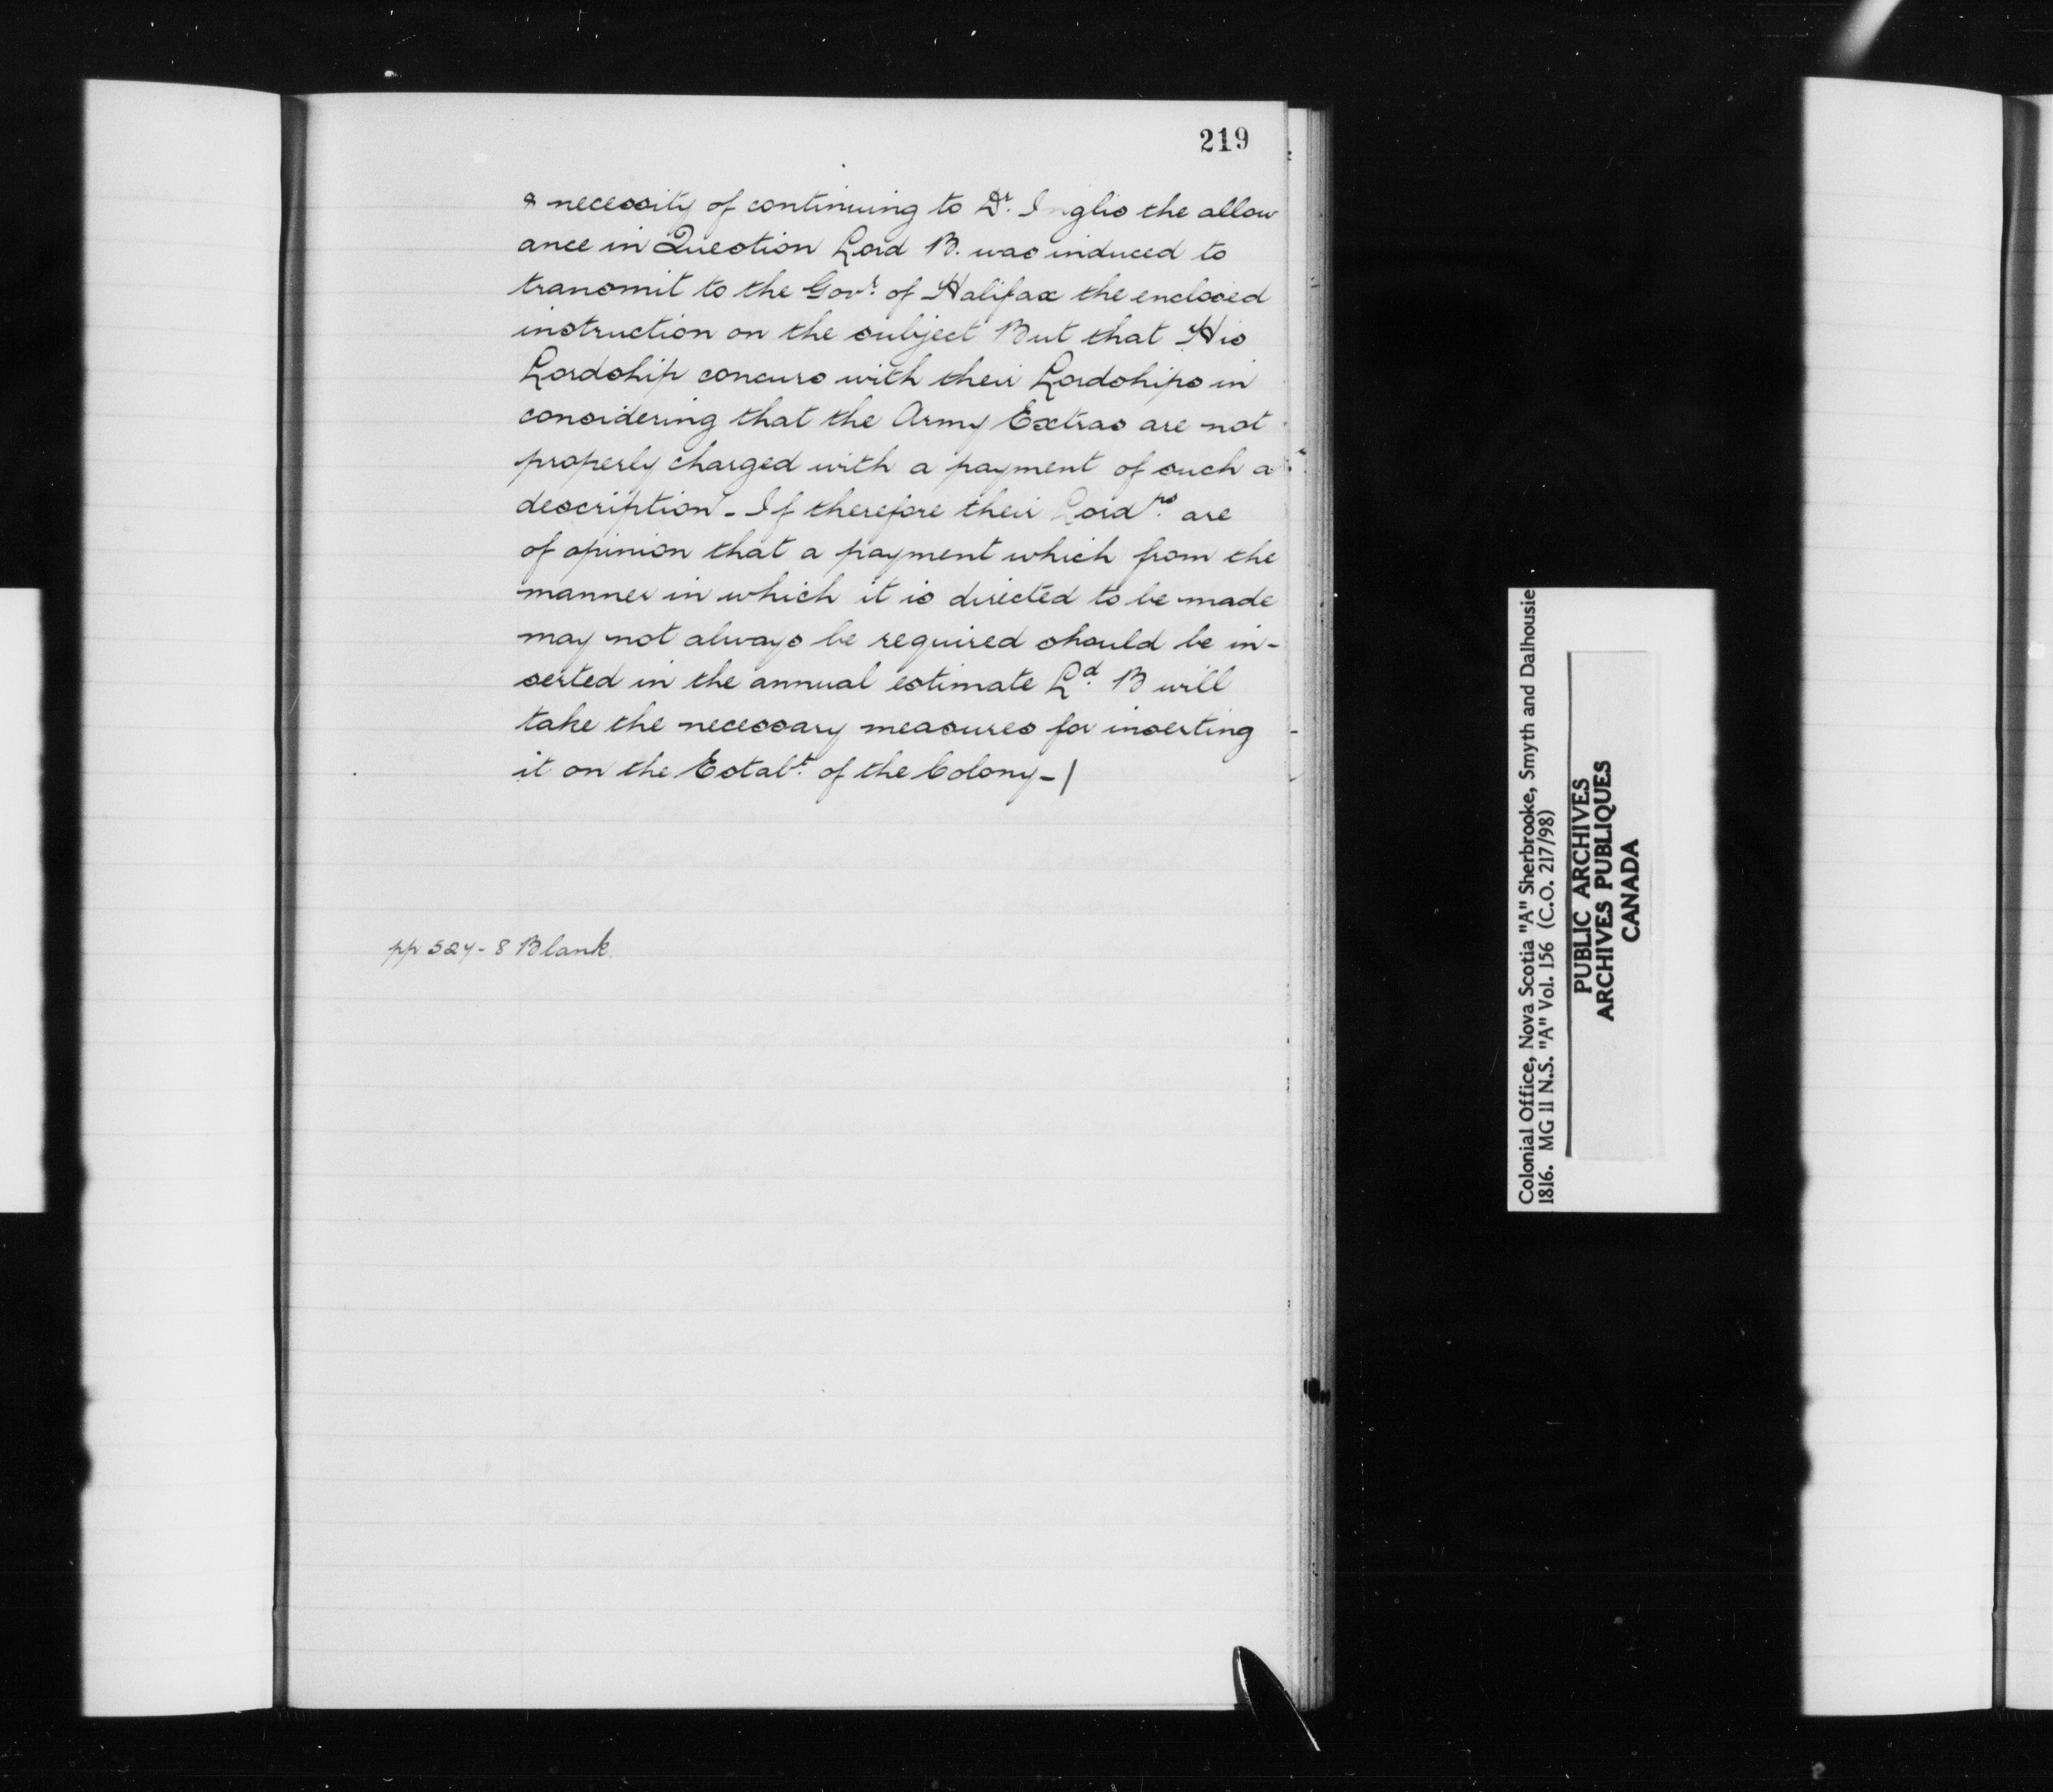 219
& necessity of continuing to Dr. Inglis the allow
ance in Question Lord B. was induced to
transmit to the Govr. of Halifax the enclosed
instruction on the subject But that His
Lordship concurs with their Lordships in
considering that the Army Extras are not
properly charged with a payment of such a
description - If therefore their Lordps. are
of opinion that a payment which from the
manner in which it is directed to be made
may not always be required should be in-
serted in the annual estimate Ld. B will
take the necessary measures for inserting
it on the Estabt. of the Colony - /
pp 527-8 Blank.
Colonial Office, Nova Scotia "A" Sherbrooke, Smyth and Dalhousie
1816. MG 11 N.S. "A" Vol. 156 (C.O. 217/98)
PUBLIC ARCHIVES
ARCHIVES PUBLIQUES
CANADA